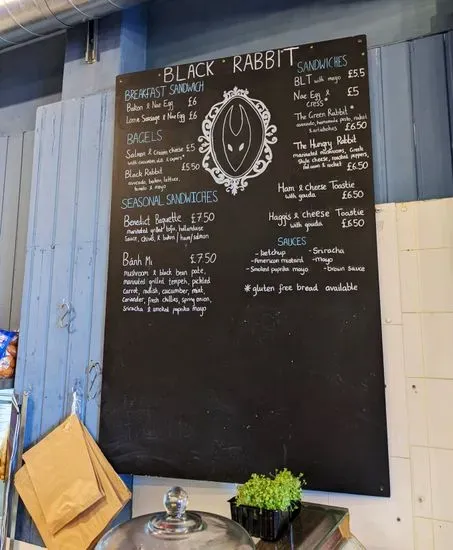 BLACK RABBIT
BREAKFAST SANDWICH
Bakon & Nae Egg £6
Lorne Sausage & Nae Egg £6
BAGELS
Salmon & Cream cheese £5
with cucumber, dill & capers*
Black Rabbit £5.50
avocado, bakon, lettuce,
tomato & mayo
SEASONAL SANDWICHES
Benedict Baguette £7.50
marinated grilled tofu, hollandaise
sauce, chives, & bakon / ham/salmon
Bánh Mì £7.50
mushroom & black bean pate,
marinated grilled tempeh, pickled
carrot, radish, cucumber, mint,
coriander, fresh chillies, spring onion,
sriracha & smoked paprika mayo
SANDWICHES
BLT with mayo £5.5
Nae Egg & £5
Cress*
The Green Rabbit*
avocado, homemade pesto, rocket
& artichokes £6.50
The Hungry Rabbit
marinated mushrooms, Greek
style cheese, roasted peppers,
& rocket £6.50
Ham & Cheese Toastie
with gouda £6.50
Haggis & cheese Toastie
with gouda £6.50
SAUCES
- Ketchup - Sriracha
- American mustard - mayo
- Smoked paprika mayo - Brown sauce
* gluten free bread available